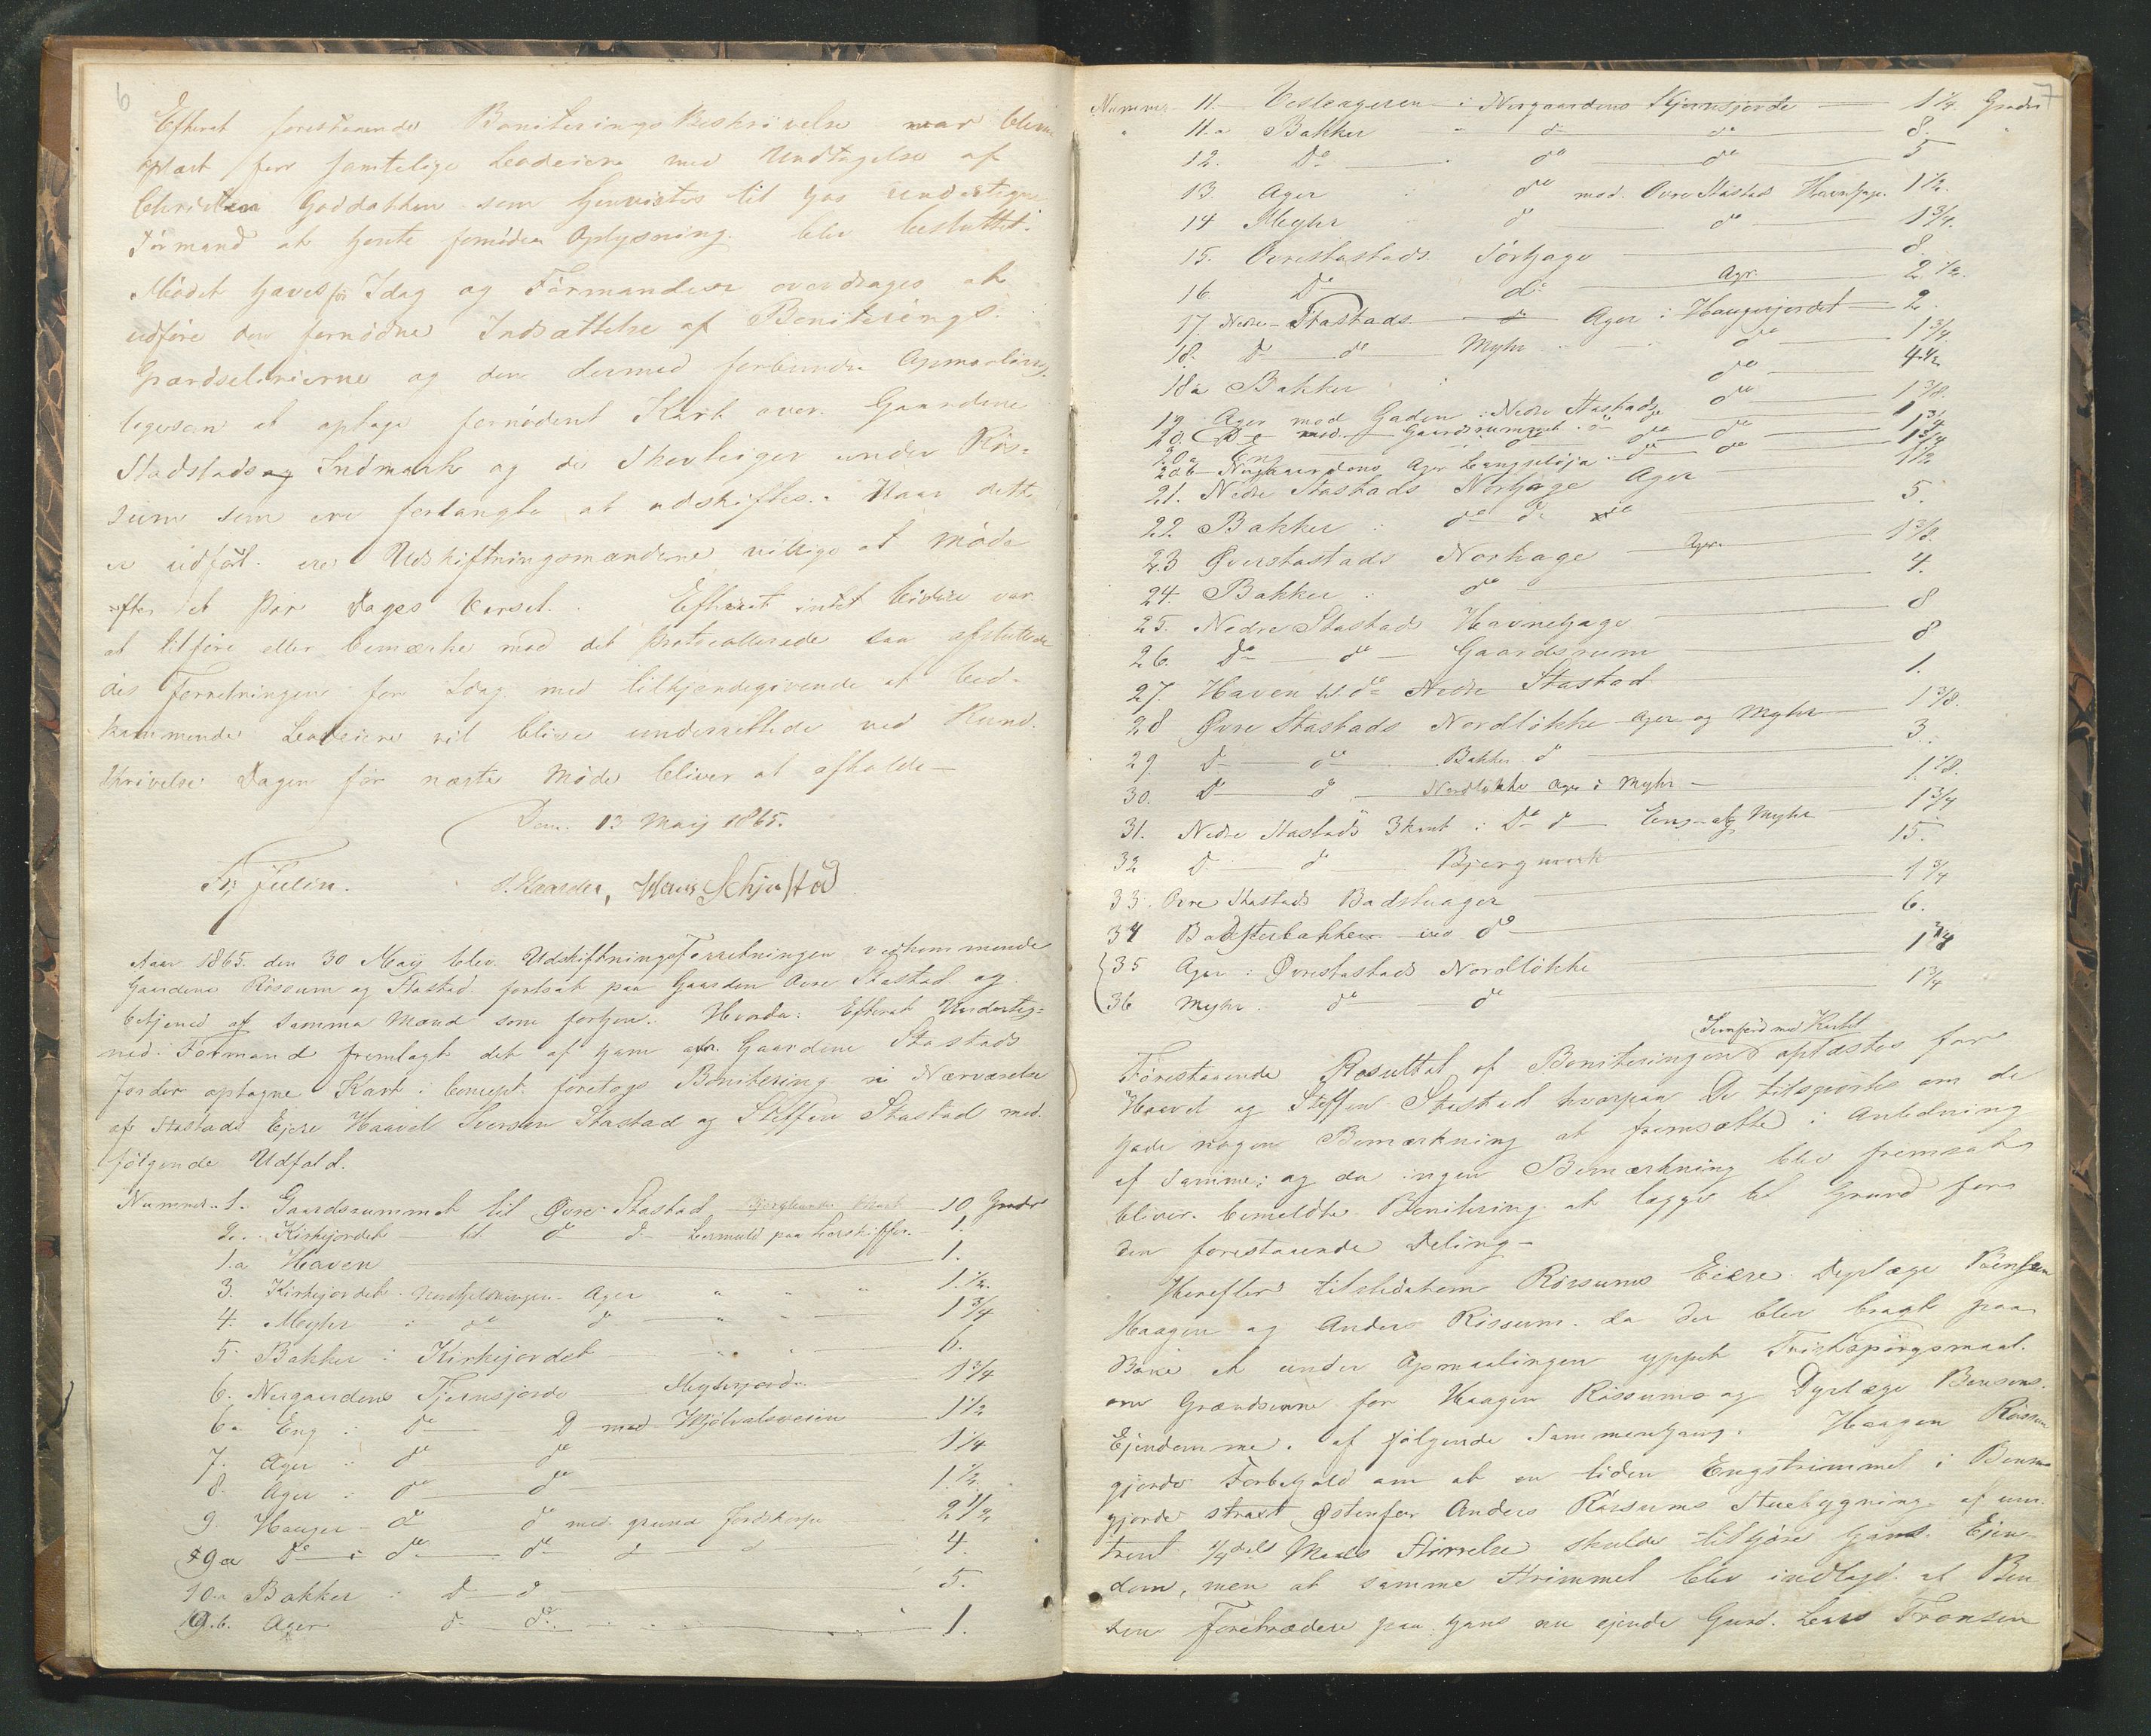 6
Efterat forestaaende Boniterings Beskrivelse var bleven
oplæst for samtelige Lodeiere med Undtagelse af
Christian Goddakken som henvistes til hos Undertegnede
Formand at hente fornøden Oplysning. blev besluttet:
Mødet hæves for Idag og Formanden overdrages at
udføre den fornødne Indsættelse af Boniterings
Grændselinierne og den dermed forbundne Opmaaling
ligesom at optage fornødent Kart over Gaardene
Stadstads og Indmark og de Skovteiger under Ris=
sum som ere forlangte at udskiftes. Naar dette
er udført ere Udskiftningsmændene villige at møde
efter et Par Dages Varsel. Efterat intet videre var
at tilføre eller bemærke med det Protocollerede saa afsluttede
des Forretningen for Idag med tilkjendegivende at ved-
kommende Lodeiere vil blive underrettede ved Rund-
skrivelse Dagen før næste Møde bliver at afholde—
Den 13 Maij 1865.
Fr: Julin. Hans Schjastad
Aar 1865. den 30 Maij blev UdskiftningsForretningen vedkommende
Gaardene Rissum og Stastad fortsat paa Gaarden Øvre Stastad og
betjened af samme Mænd som forhen. Hvorda: Efterat Underteg=
ned Formand fremlagt det af ham over Gaardene Stastads
Jorder optagne Kart i Concept foretoges Bonitering i Nærværelse
af Stastads Ejere Haavel Iversen Stastad og Steffen Stastad med
følgende Udfald.
Nummer. 1. Gaardsrummet til Øvre Stastad 10 Grader
2. Kirkejordet til do do Leermuld paa Leerskiffer. 1.
1.a Haven 1.
3. Kirkejordet Ager " " " 1 1/2.
4. Myhr i do do " " 1 3/4
5 Bakker i Kirkejordet " " 6.
6. Nergaardens Tjernsjorde Myhrjord 1 3/4
6a Eng i do Do med Mjølvalsveien 1 1/2
7. Ager i do do 1 1/4
8. Ager i do do 1 1/2.
9. Hauger do do med grund Jordskorpe 2 1/2
9a Do i do do 4.
10a Bakker i Do do 5.
9.b. Ager do do 1.
7
Nummer 11. Vesleageren i Nergaardens Kjernsjorde 1 1/4. Grader
" 11.a Bakker do do 8. "
12. Do do do 5
13. Ager do mod Øvre Stastads Havnhage. 1 1/2.
14 Myhr do do 1 3/4.
15. Øvrestastads Sørhage 8.
16 Do do Ager 2 1/2.
17. Nedre Stastads do Ager i Haugerjordet 2
18. Do do Myhr do 1 3/4
18a Bakker do 4 1/2
19 Ager mod Gaden i Nedre Stastads do 1 3/8.
20. Do mod Gaardsrummet do do 1
20a Eng do do do 1 3/4
20b Nergaardens Ager Langsløja do do 1 3/4
21. Nedre Stastads Norhage Ager 1 1/2
22 Bakker i do do 5.
23 Øverstastads Norhage Ager 1 3/8.
24. Bakker i do 4.
25. Nedre Stastads Havnehage 8
26. Do do Gaardsrum 8
27. Haven til do Nedre Stastad 1.
28 Øvre Stastads Nordløkke Ager og Myhr 1 3/8.
29. Do do Bakker do 3.
30. Do do Nordløkke Ager i Myhr 1 7/8.
31. Nedre Stastads 3kant i Do do Eng af Myhr 1 3/4
32 Do do Bjergmark 15.
33. Øvre Stastads Badstuager 1 3/4
34 Badstubakken ved do 6.
35 Ager i Øvrestastads Nordløkke
36 Myhr do do 1 3/4
Jemførd med Kartet
Forestaaende Resultat af Boniteringen oplæstes for
Haavel og Steffen Stastad hvorpaa De tilspurtes om de
havde nogen Bemærkning at fremsætte i Anledning
af Samme; og da ingen Bemærkning blev fremsat
bliver bemeldte Bonitering at lægge til Grund for
den forestaaende Deling—
Herefter tilstedekom Rissums Eiere Dyrlæge Bensen
Haagen og Anders Rissum. da der blev bragt paa
Bane et under Opmaalingen yppet Tvistspørgsmaal
om Grændserne for Haagen Rissums og Dyrlæge Bensens
Ejendomme. af følgende Sammenhæng. Haagen Rissum
gjorde Forbehold om at en liden Engstrimmel i Bensens
gjorde straxt Østenfor Anders Rissums Stuebygning af om-
trent 1/4 dels Maals Størrelse skulde tilhøre hans Ejen-
dom, men at samme Strimmel blev indtaget af Ben
sens Forhrædere paa hans nu ejende Gaard. Lars Fransen